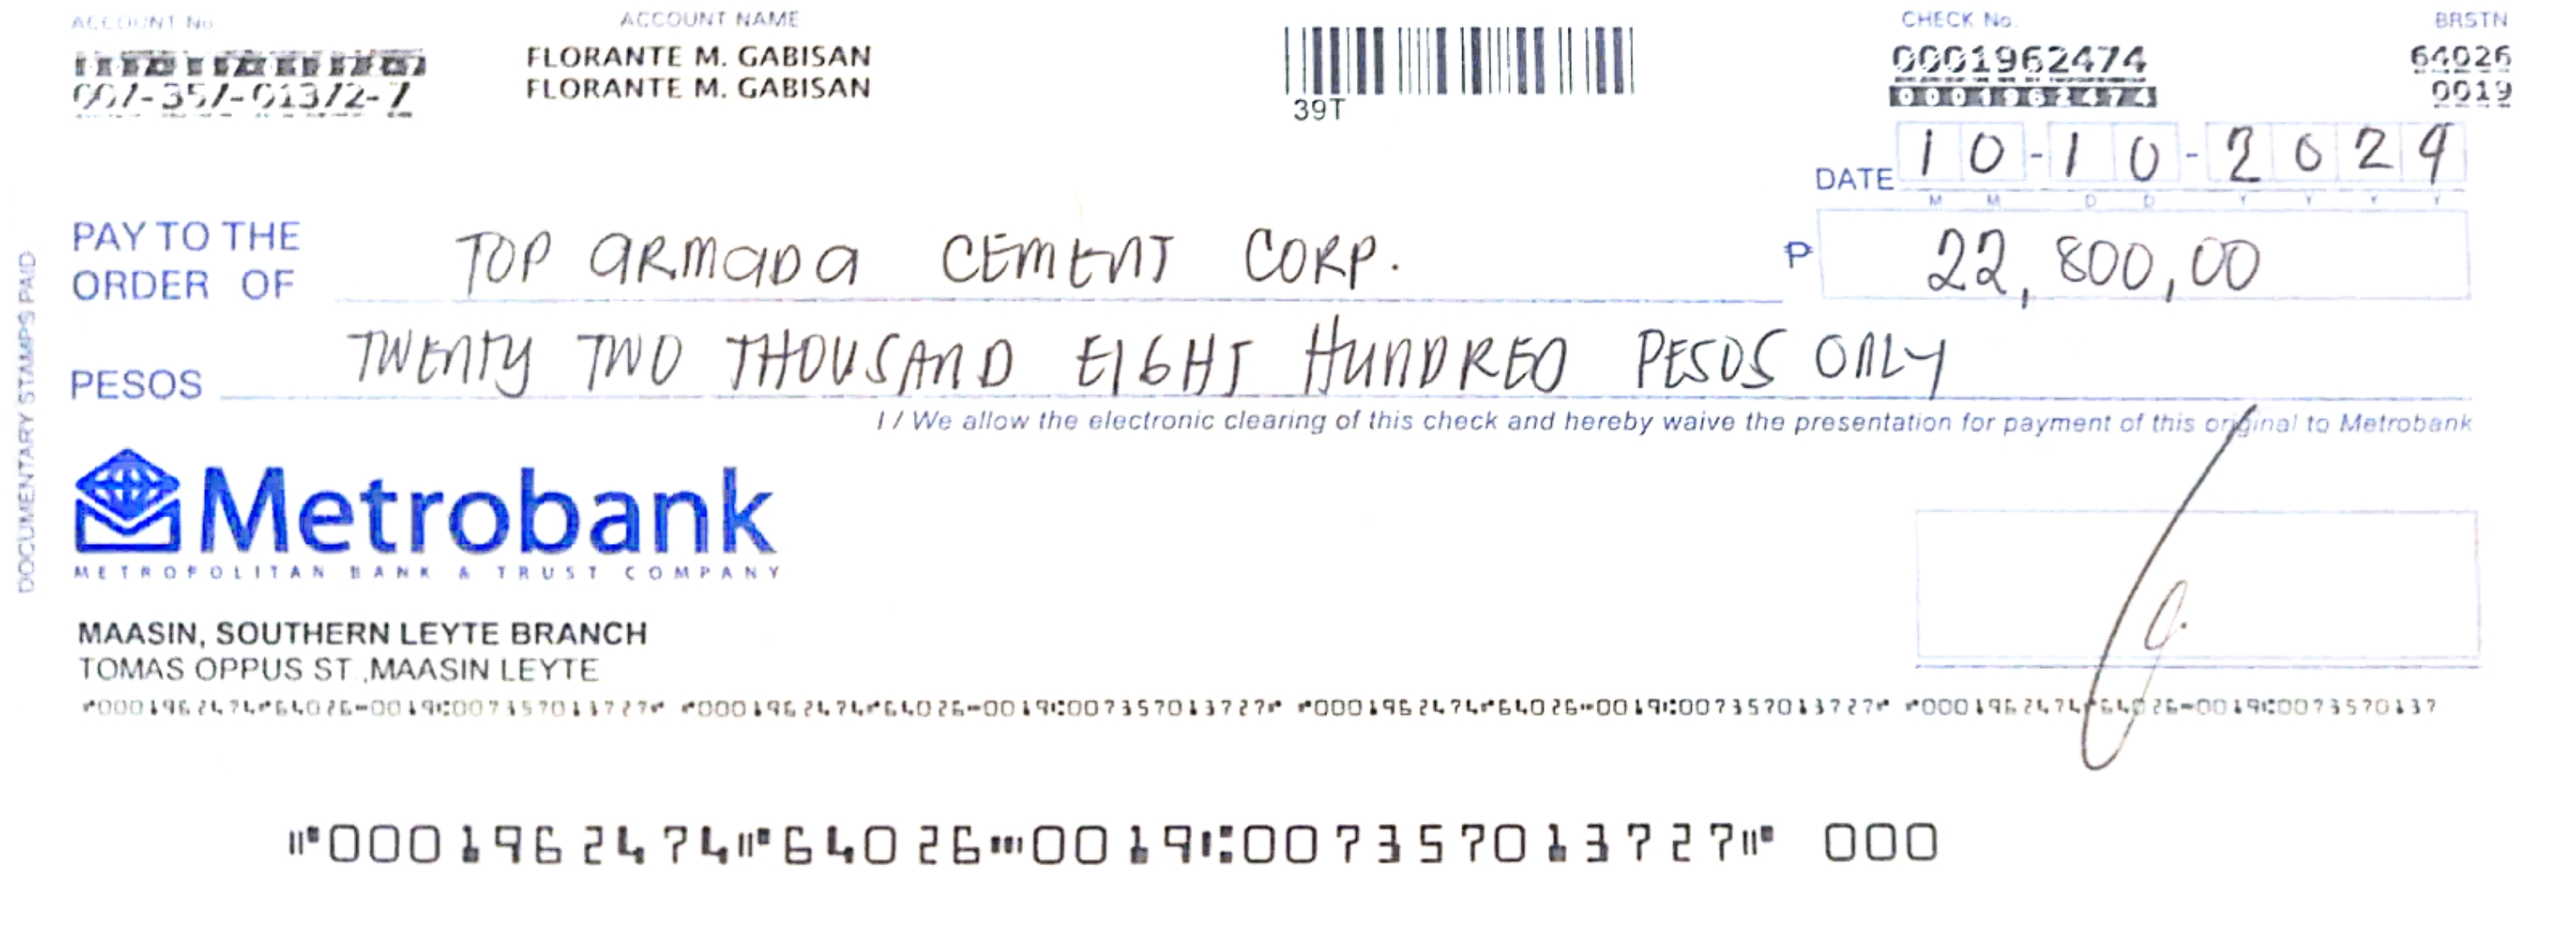 ACCOUNT No.
ACCOUNT NAME
CHECK No.
BRSTN
FLORANTE M. GABISAN
0001962474
64026
007-357-01372-7
FLORANTE M. GABISAN
39T
0001962474
0019
DATE 10-10-2024
M M D D Y Y Y Y
PAY TO THE
ORDER OF TOP ARMADA CEMENT CORP. ₱ 22,800,00
PESOS TWENTY TWO THOUSAND EIGHT HUNDRED PESOS ONLY
I / We allow the electronic clearing of this check and hereby waive the presentation for payment of this original to Metrobank
DOCUMENTARY STAMPS PAID
Metrobank
METROPOLITAN BANK & TRUST COMPANY
MAASIN, SOUTHERN LEYTE BRANCH
TOMAS OPPUS ST.,MAASIN LEYTE
⑈0001962474⑈64026⑉0019⑆007357013727⑈ ⑈0001962474⑈64026⑉0019⑆007357013727⑈ ⑈0001962474⑈64026⑉0019⑆007357013727⑈ ⑈0001962474⑈64026⑉0019⑆0073570137
⑈0001962474⑈64026⑉0019⑆007357013727⑈ 000